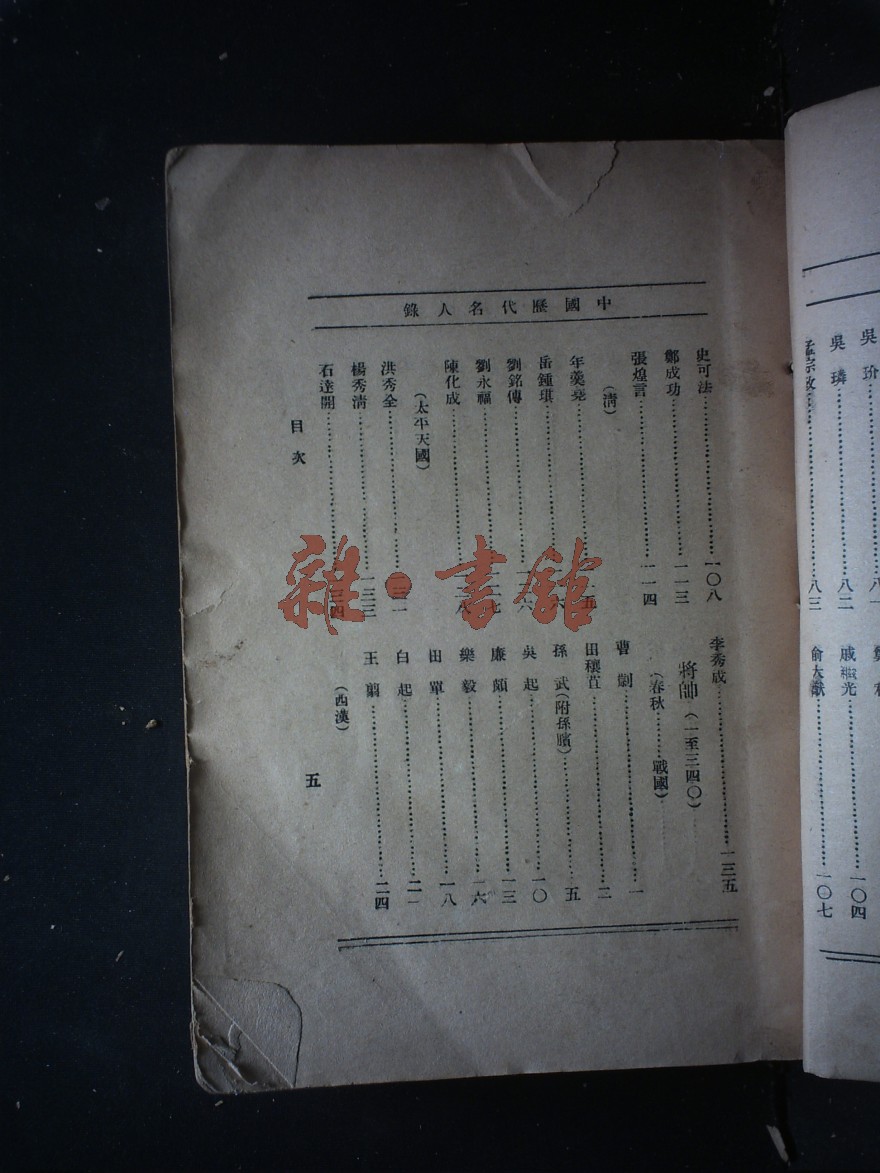 吳玠
吳璘……八二
……八三
戚繼光……一〇四
俞大猷……一〇七
中國歷代名人錄
史可法……一〇八
鄭成功……一一三
張煌言……一一四
(清)
年羹堯……
岳鍾琪……
劉銘傳……
劉永福……
陳化成……
(太平天國)
洪秀全……
楊秀淸……一三三
石達開……
李秀成……一三五
將帥(一至三四〇)
(春秋……戰國)
曹劌……一
田穰苴……二
孫武(附孫臏)……五
吳起……一〇
廉頗……一三
樂毅……一六
田單……一八
白起……二一
王翦……二四
(西漢)
目次
五
雜·書館